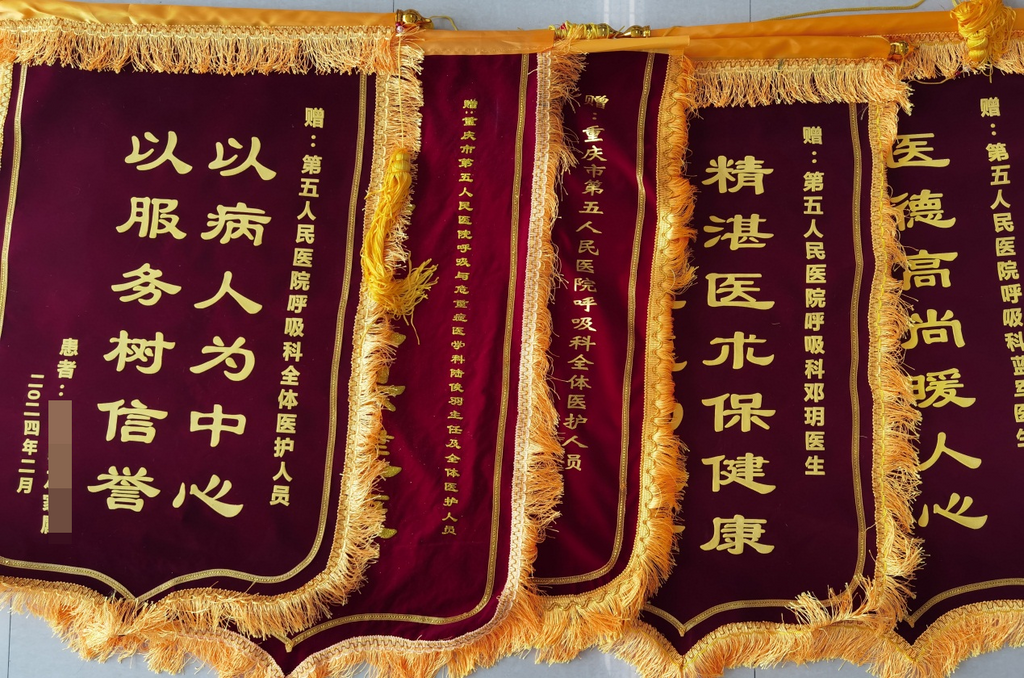 赠：第五人民医院呼吸科全体医护人员
以病人为中心
以服务树信誉
患者：
二〇二四年二月
赠：重庆市第五人民医院呼吸与危重症医学科陆俊羽主任及全体医护人员
赠：重庆市第五人民医院呼吸科全体医护人员
赠：第五人民医院呼吸科邓玥医生
精湛医术保健康
赠：第五人民医院呼吸科蓝军医生
医德高尚暖人心